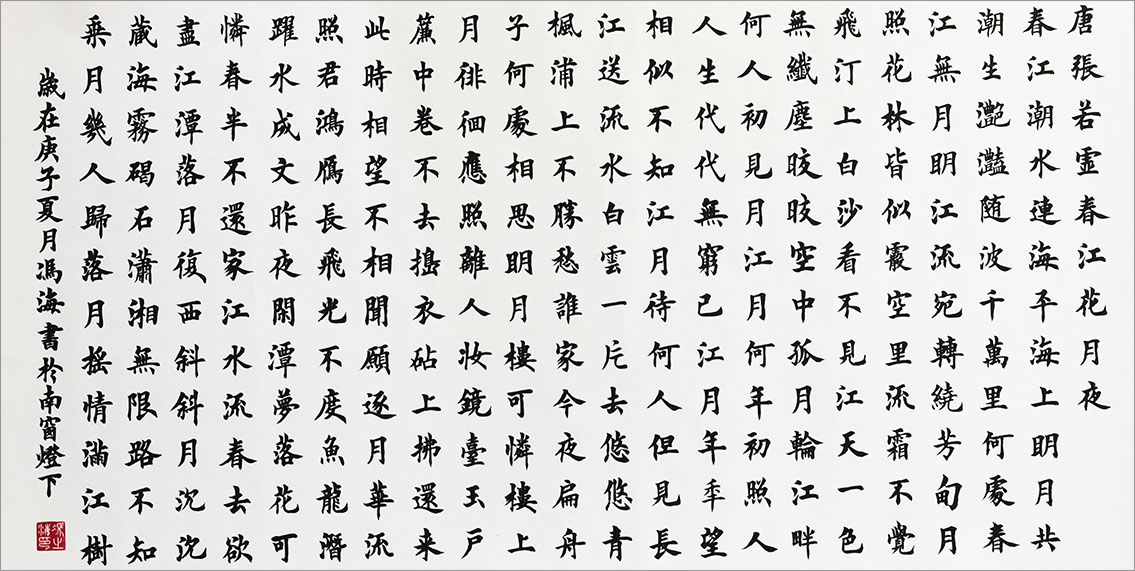 唐張若虛春江花月夜
春江潮水連海平海上明月共
潮生滟灩随波千萬里何處春
江無月明江流宛轉繞芳甸月
照花林皆似霰空里流霜不覺
飛汀上白沙看不見江天一色
無纖塵皎皎空中孤月輪江畔
何人初見月江月何年初照人
人生代代無窮已江月年年望
相似不知江月待何人但見長
江送流水白雲一片去悠悠青
楓浦上不勝愁誰家今夜扁舟
子何處相思明月樓可憐樓上
月徘徊應照離人妝鏡臺玉戶
簾中卷不去搗衣砧上拂還来
此時相望不相聞願逐月華流
照君鴻雁長飛光不度魚龍潛
躍水成文昨夜閑潭夢落花可
憐春半不還家江水流春去欲
盡江潭落月復西斜斜月沉沉
藏海霧碣石瀟湘無限路不知
乘月幾人歸落月搖情滿江樹
歲在庚子夏月馮海書於南窗燈下